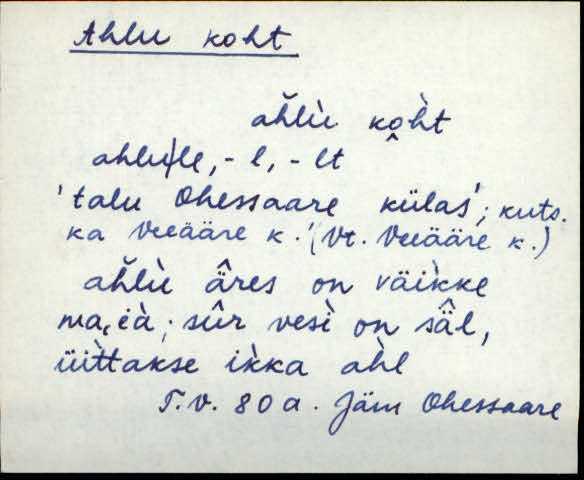 Ahlu koht
ah̆lù kô̭ht
ahlu|le, -l, -lt
'talu Ohessaare külas'; kuts.
ka Veeääre k. (Vt. Veeääre k.)
ah̆lù âres on väikke
ma, ; sûr vesì on säl,
üìttakse ikka ahl
T.V. 80a. Jäm Ohessaare